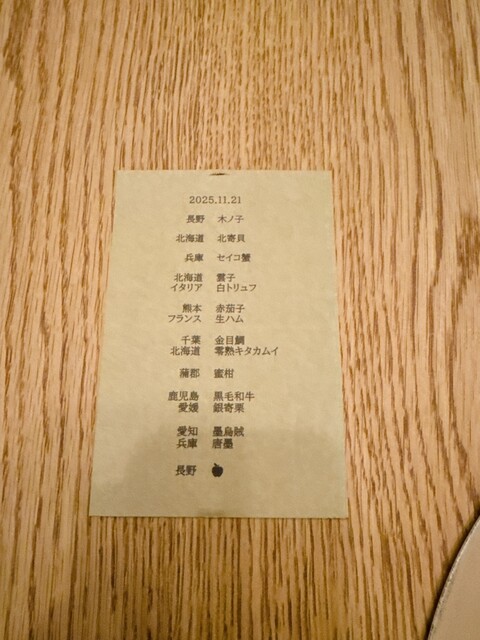 2025.11.21
長野 木ノ子
北海道 北寄貝
兵庫 セイコ蟹
北海道 雲子
イタリア 白トリュフ
熊本 赤茄子
フランス 生ハム
千葉 金目鯛
北海道 零熟キタカムイ
蒲郡 蜜柑
鹿児島 黒毛和牛
愛媛 銀寄栗
愛知 墨烏賊
兵庫 唐墨
長野